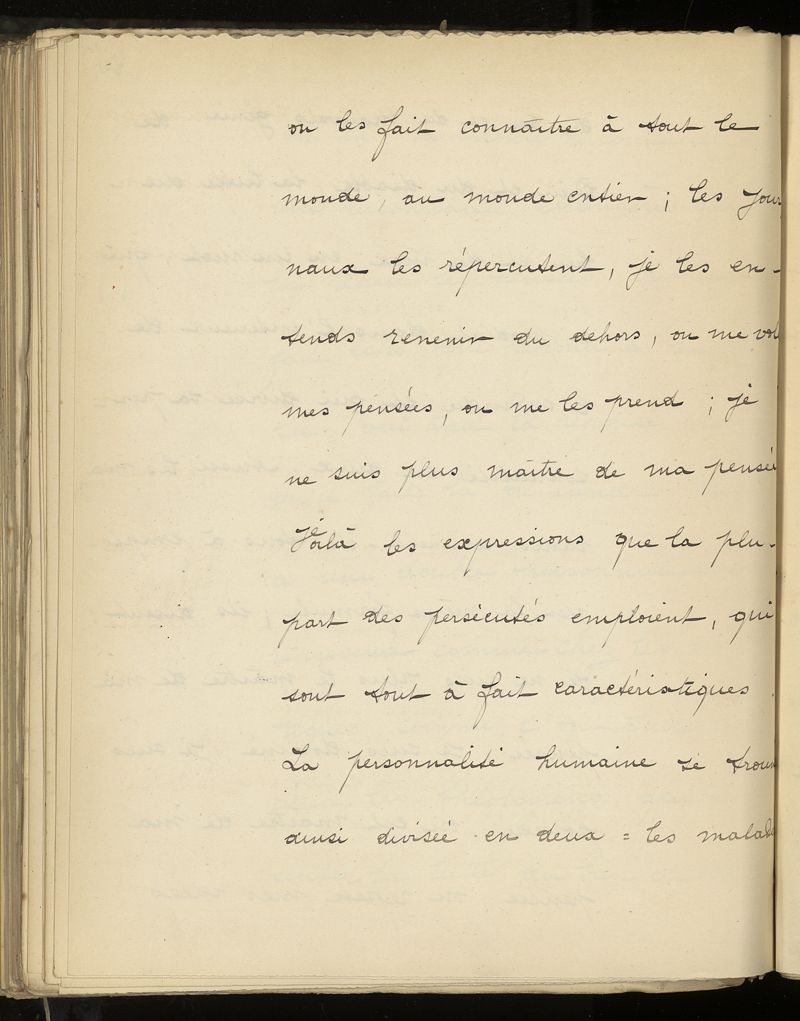 on les fait connaître à tout le
monde, au monde entier ; les jour
naux les répercutent, je les en-
tends revenir du dehors, on me vol
mes pensées, on me les prend ; je
ne suis plus maître de ma pensée
Voilà les expressions que la plu-
part des persécutés emploient, qui
sont tout à fait caractéristiques.
La personnalité humaine se trouv
ainsi divisée en deux = les malade